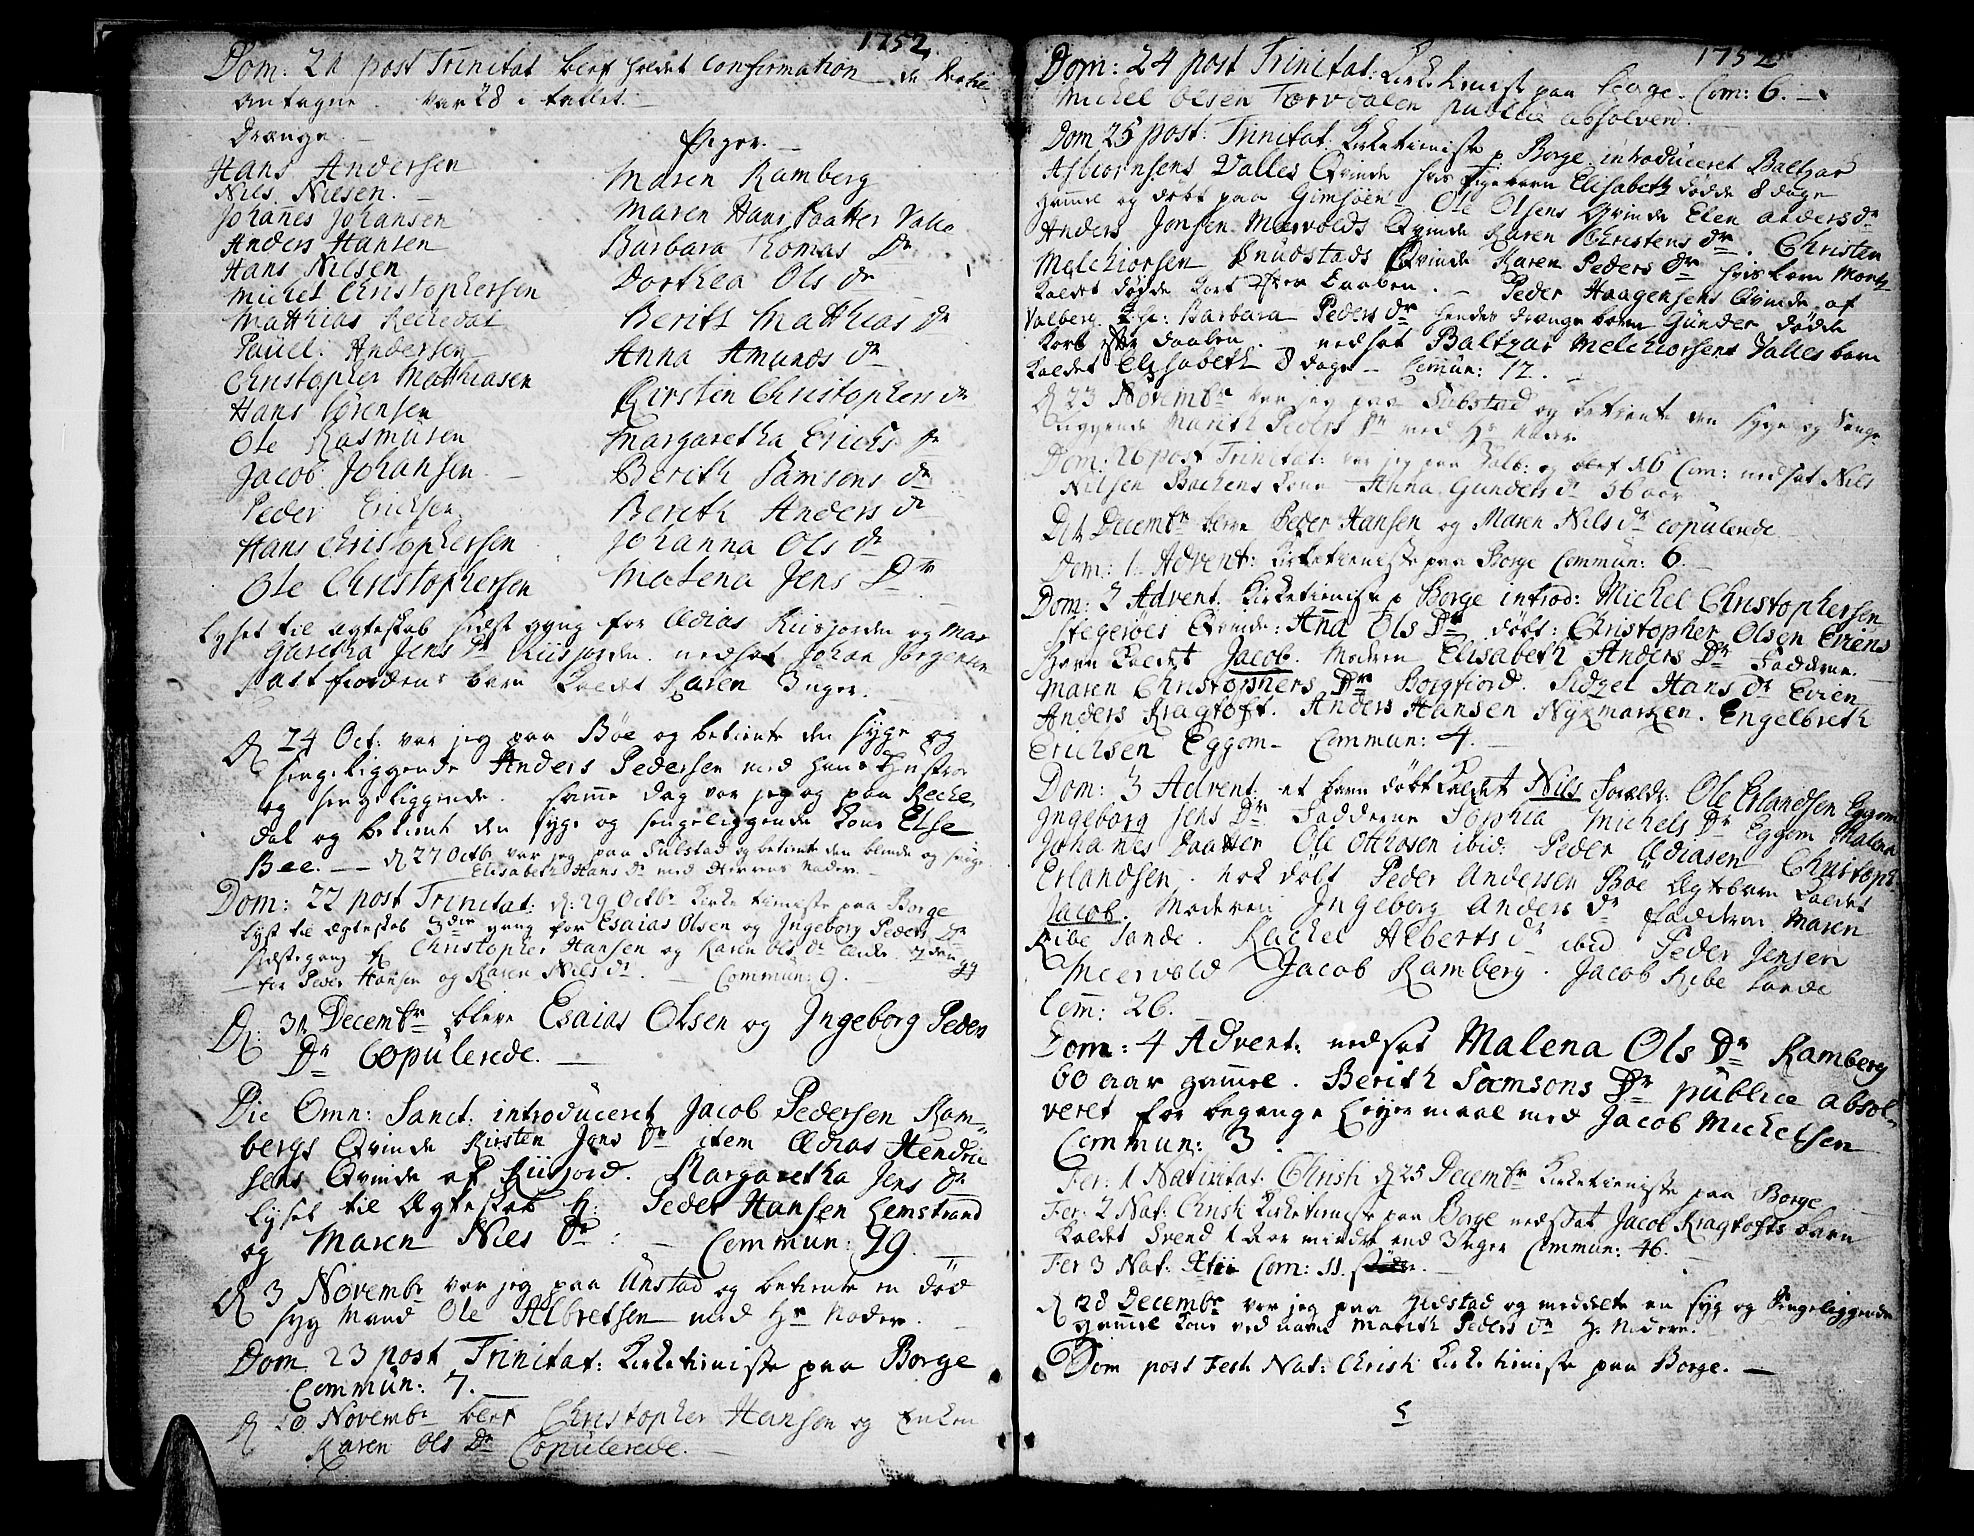 1752
Dom: 21 post Trinitat blef holdet Confirmation de
antagne var 28 i tallet.
Drænge
Hans Andersen
Nils Nilsen
Johanes Johansen
Anders Hansen
Hans Nilsen
Michel Christophersen
Matthias Rechedal
Pauel Andersen
Christopher Matthiasen
Hans Sørensen
Ole Rasmusen
Jacob Johansen
Peder Erichsen
Hans Christophersen
Ole Christophersen
Piger.
Maren Ramberg
Maren Hans Daatter Valle
Barbara Thomas Dr
Dorthea Ols dr
Berith Matthias dr
Anna Amunds dr
Kirsten Christophers dr
Margaretha Erichs dr
Berith Samsons dr
Berith Anders dr
Johanna Ols dr
Malena Jens Dr
Lyset til ægteskab sidste gang for Ædias Riisjorden og Mar
garetha Jens Dr Riisjorden. nedsat Johan Jørgensen
fiordens barn kaldet Karen Inger.
D 24 Oct: var jeg paa Böe og betiente den syge og
sengeliggende Anders Pedersen med hans Hustroe
og sengeliggende. samme dag var jeg og paa Reche
dal og betient den syge og sengeliggende kone Else
Bee. — D 27 Octb var jeg paa Sulstad og betiente den blinde og syge
Elisabeth Hans dr med Herrens Nadere.
Dom: 22 post Trinitat: D: 29 Octbr Kirke tieniste paa Borge
lyst til ægteskab 3die gang for Esaias Olsen og Ingeborg Peders Dr
sidste gang f Christopher Hansen og Karen Ols Dr Enke. 2den gg
for Peder Hansen og Maren Nils dr. — Commun: 9.
D: 31 Decembr bleve Esaias Olsen og Ingeborg Peders
Dr Copulerede.
Die Omn: Sanct: introduceret Jacob Pedersen Ram-
bergs Qvinde Kirsten Jens Dr item Ædias Hendric
sens Qvinde af Riisjord. Margaretha Jens Dr
lyset til Ægteskab f: Peder Hansen Lemstrand
og Maren Niels Dr: — Commun: 29.
D 3 Novembr var jeg paa Unstad og betiente en död
syg Mand Ole Albretsen med Hr Nadere.
Dom 23 post Trinitat: Kirketieniste paa Borge
Commun: 7.
D 10 Novembr blef Christopher Hansen og Enken
Karen Ols Dr Copulerede.
1752
Dom: 24 post Trinitat: Kirketieniste paa Borge. Com: 6.
Michel Olsen Torvdalen publice absolvered.
Dom 25 post: Trinitat. Kirketieniste p Borge introduceret Baltzar
Asbiörnsens Valles Qvinde hvis Pigebarn Elisabeth dödde 8 dage
gammel og döbt paa Gimsöen. Ole Olsens Qvinde Elen Anders dr
Anders Jonsen Mærvolds Qvinde Karen Christens dr. Christen
Melchiorsen Knudstads Qvinde Karen Peders dr hvis barn
kaldet dödde kort efter daaben. — Peder Haagensens Qvinde af
Valberg Barbara Peders dr hendes drænge barn Gunder dödde
kort efter daaben. — nedsat Baltzar Melchiorsens Valles barn
kaldet Elisabeth 8 dage — Comun: 12.
D 23 Novembr var jeg paa Sulstad og betiente den syge og senge
liggende Marith Peders Dr med Hr Nadere.
Dom: 26 post Trinitat: var jeg paa Valb: og blef dito Com: nedsat Nils
Nilsen Bachens kone Anna Gunders dr 36 aar
D 1 Decembr bleve Peder Hansen og Maren Nils dr copulerede
Dom: 1. Advent: Kirketieniste paa Borge Commun: 6.
Dom: 2 Advent. Kirketieniste p Borge introd: Michel Christophersen
Stegeröes Qvinde: Anna Ols Dr döbt: Christopher Olsen Eriens
Barn kaldet Jacob. Moderen Elisabeth Anders Dr Fadderne.
Maren Christophers Dr Borgfiord. Sidzel Hans dr Evien
Anders Kragtoft. Anders Hansen Nykmarken. Engelbreth
Erichsen Eggom — Commun: 4.
Dom: 3 Advent: et barn döbt kaldet Nils Forældr: Ole Erlandsen Eggom
Ingeborg Jens Dr Fadderne Sophia Michels Dr Eggom Malena
Johanes Daatter Ole Ottersen ibid: Peder Ædiasen Christoph.
Erlandsen. nok döbt Peder Andersen Böe ægtebarn kaldet
Jacob. Moderen Ingeborg Anders dr Fadderne Maren
Ribe Sande. Rachel Alberts dr ibid Peder Jensen
Meervold Jacob Ramberg. Jacob Ribe Sande
Com: 26.
Dom: 4 Advent: nedsat Malena Ols Dr Ramberg
60 aar gammel. Berith Samsons Dr publice absol-
veret for begange Leyermaal med Jacob Michelsen
Commun: 3.
Fer: 1 Nativitat. Christi D 25 Decembr Kirketieniste paa Borge
Fer: 2 Nat: Christi Kirketieniste paa Borge nedsat Jacob Kragtofts barn
kaldet Svend 1 aar mindre end 3 uger Commun: 46.
Fer 3 Nat: Com: 11.
D 28 Decembr var jeg paa Gidstad og meddelte en syg og sengeliggende
gammel kone ved navn Marith Peders dr H. Nadere.
Dom post Fest: Nat: Christi Kirketieniste paa Borge. —